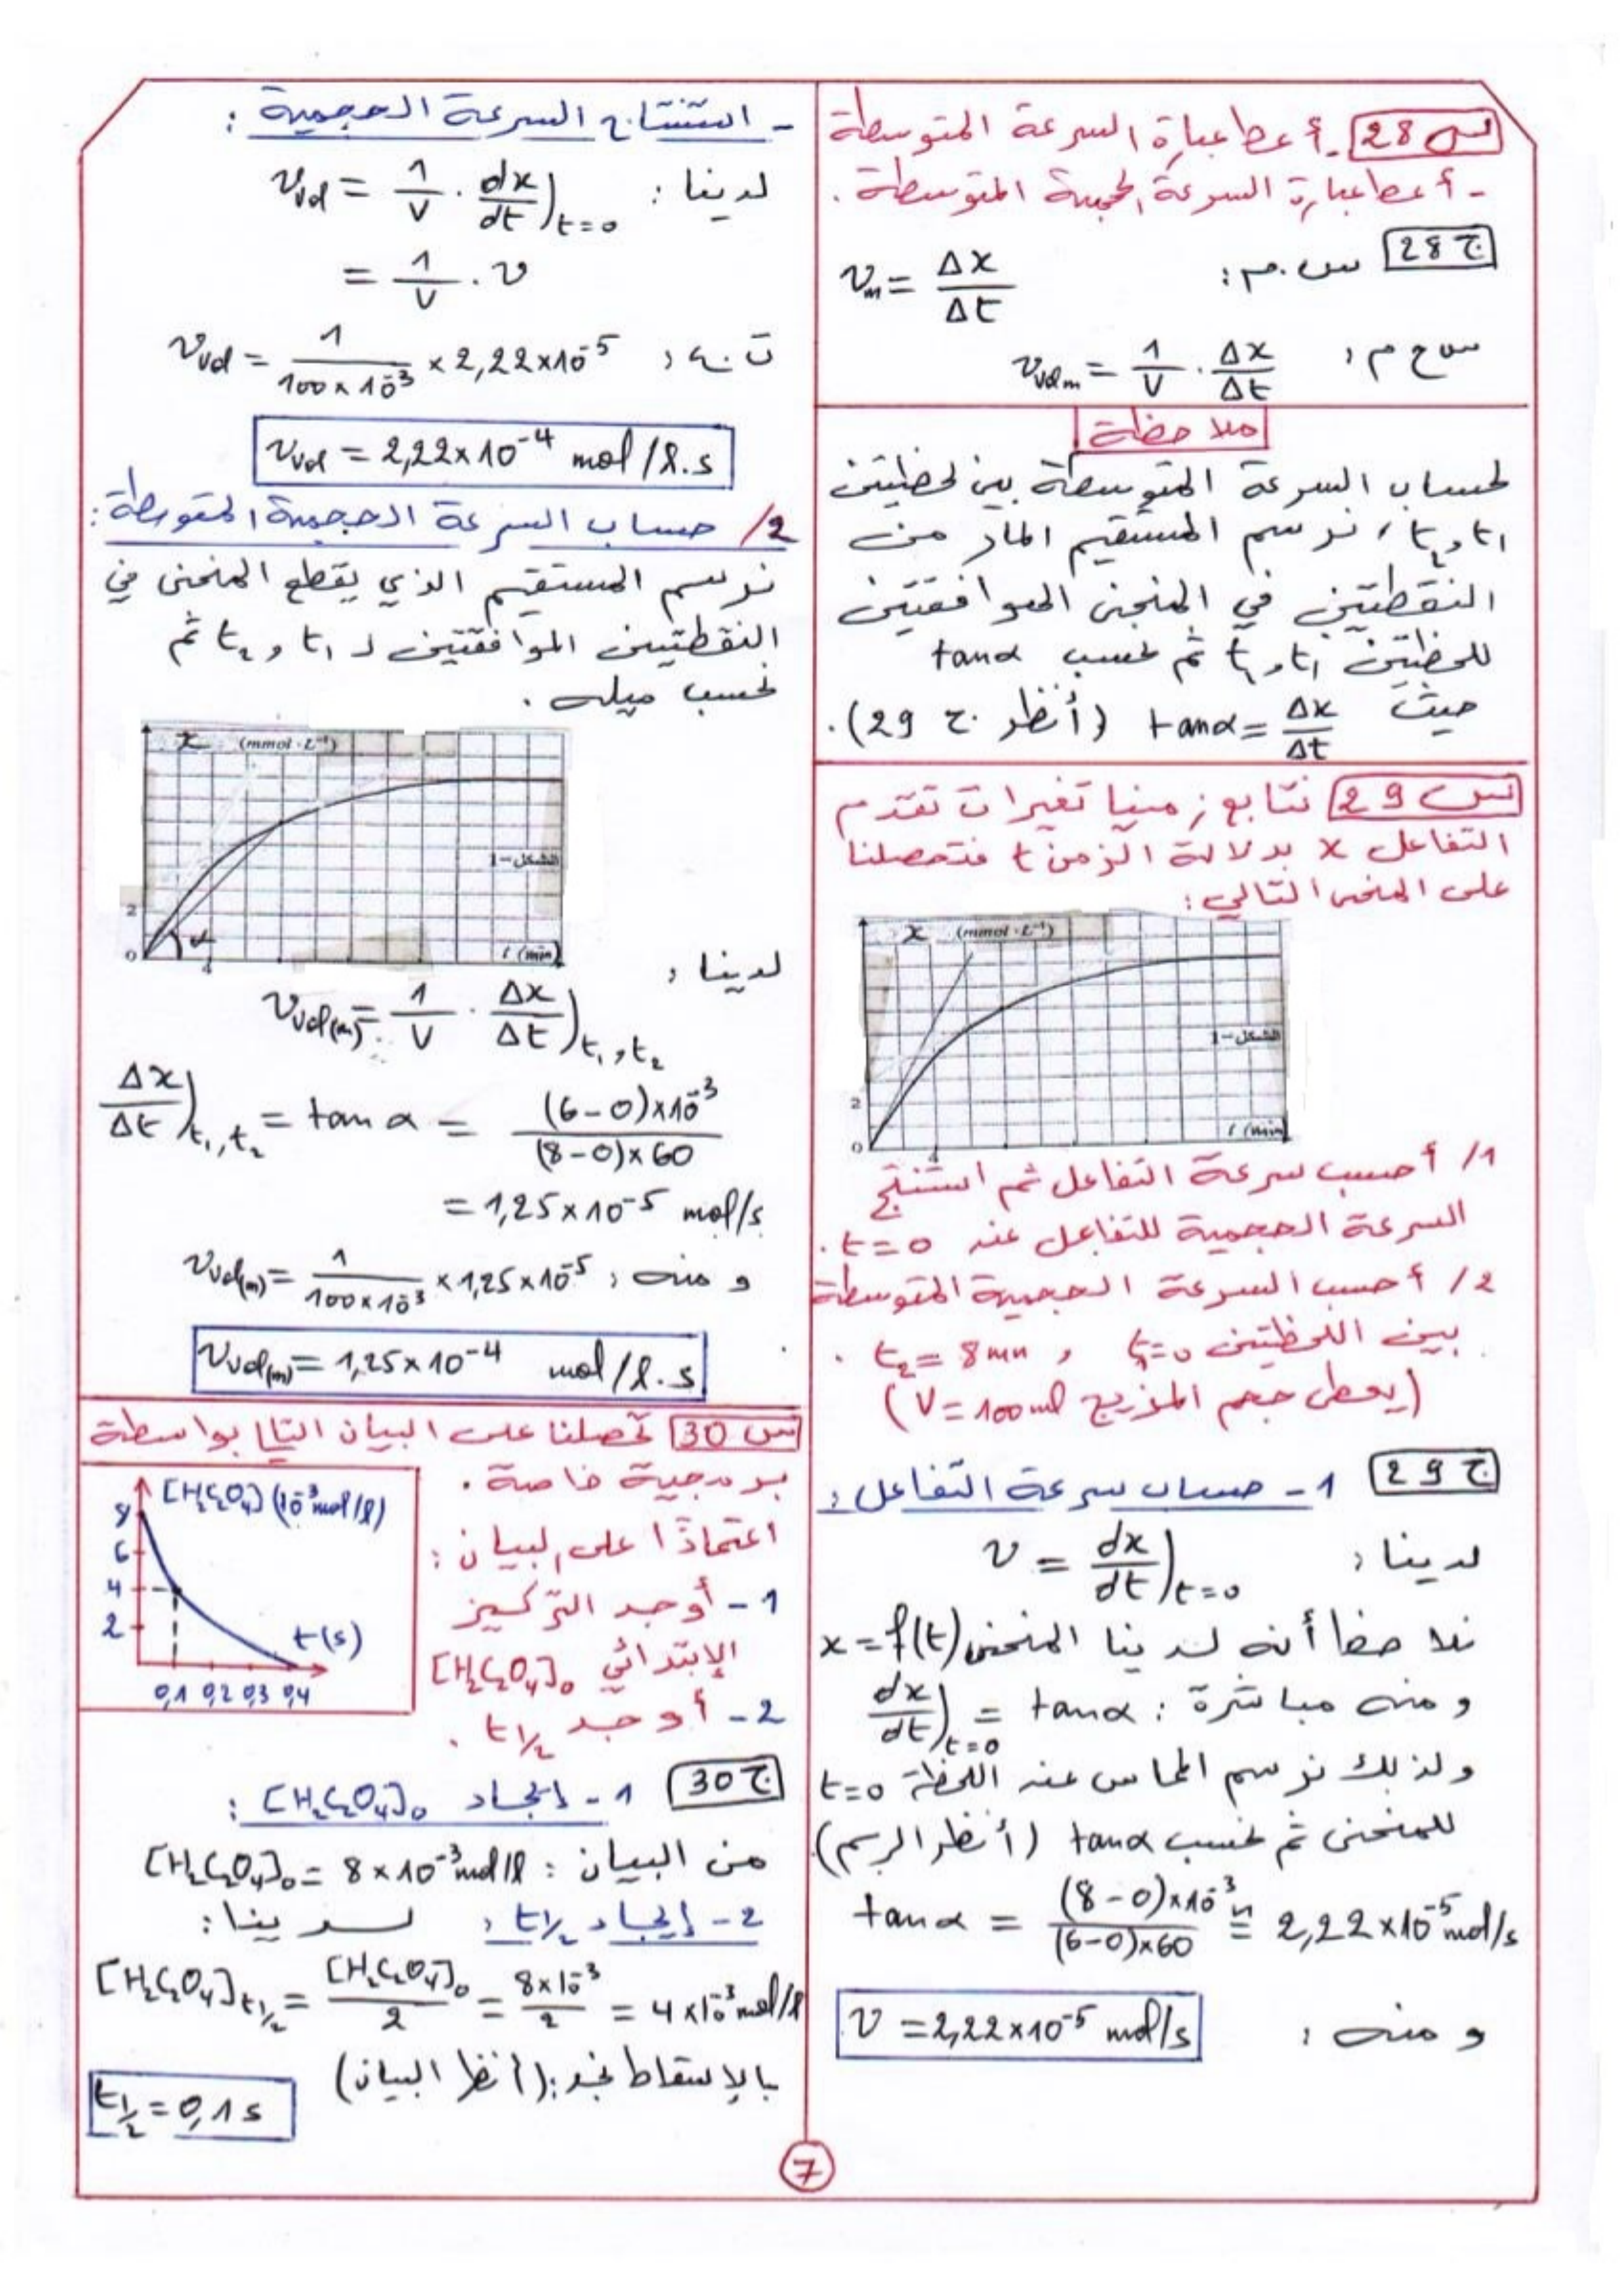 س 28 - أعط عبارة السرعة المتوسطة
- أعط عبارة السرعة الحجمية المتوسطة.
ج 28 س.م: v_m = Δx/Δt
س ح م: v_vol m = 1/V . Δx/Δt
ملاحظة
لحساب السرعة المتوسطة بين لحظتين
t₁ و t₂، نرسم المستقيم المار من
النقطتين في المنحنى الموافقتين
للحظتين t₁ و t₂ ثم نحسب tanα
حيث tanα = Δx/Δt (أنظر ج 29).
س 29 نتابع زمنيا تغيرات تقدم
التفاعل x بدلالة الزمن t فتحصلنا
على المنحنى التالي:
x (mmol·L⁻¹)
الشكل-1
2
0
4
t (min)
1/ أحسب سرعة التفاعل ثم استنتج
السرعة الحجمية للتفاعل عند t=0.
2/ أحسب السرعة الحجمية المتوسطة
بين اللحظتين t₁=0 و t₂= 8mn.
(يعطى حجم المزيج V=100ml)
ج 29 1- حساب سرعة التفاعل:
لدينا: v = dx/dt)t=0
نلاحظ أنه لدينا المنحنى x=f(t)
و منه مباشرة: dx/dt)t=0 = tanα
ولذلك نرسم المماس عند اللحظة t=0
للمنحنى ثم نحسب tanα (أنظر الرسم)
tanα = (8-0)×10⁻³/(6-0)×60 = 2,22×10⁻⁵ mol/s
و منه: v = 2,22×10⁻⁵ mol/s
- استنتاج السرعة الحجمية:
لدينا: v_vol = 1/V . dx/dt)t=0
= 1/V . v
ت.ع: v_vol = 1/100×10⁻³ × 2,22×10⁻⁵
v_vol = 2,22×10⁻⁴ mol/l.s
2/ حساب السرعة الحجمية المتوسطة:
نرسم المستقيم الذي يقطع المنحنى في
النقطتين الموافقتين لـ t₁ و t₂ ثم
نحسب ميله.
x (mmol·L⁻¹)
الشكل-1
2
α
0
4
t (min)
لدينا:
v_vol(m) = 1/V . Δx/Δt)t₁,t₂
Δx/Δt)t₁,t₂ = tanα = (6-0)×10⁻³/(8-0)×60
= 1,25×10⁻⁵ mol/s
و منه: v_vol(m) = 1/100×10⁻³ × 1,25×10⁻⁵
v_vol(m) = 1,25×10⁻⁴ mol/l.s
س 30 تحصلنا على البيان التالي بواسطة
برمجية خاصة.
اعتمادًا على البيان:
1- أوجد التركيز
الإبتدائي [H₂C₂O₄]₀
2- أوجد t½.
[H₂C₂O₄] (10⁻³mol/l)
8
6
4
2
t(s)
0,1 0,2 0,3 0,4
ج 30 1- إيجاد [H₂C₂O₄]₀:
من البيان: [H₂C₂O₄]₀ = 8×10⁻³mol/l
2- إيجاد t½: لدينا:
[H₂C₂O₄]t½ = [H₂C₂O₄]₀/2 = 8×10⁻³/2 = 4×10⁻³mol/l
بالإسقاط نجد: (أنظر البيان)
t½ = 0,1s
7